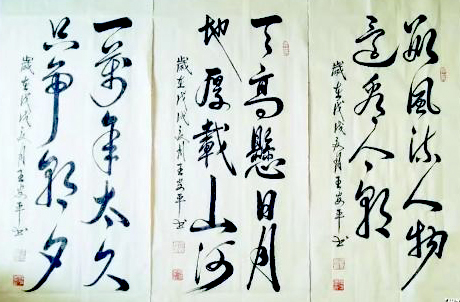 数風流人物
还看今朝
歲在戊戌 月王安平书
天高懸日月
地厚載山河
歲在戊戌 月王安平书
一萬年太久
只争朝夕
歲在戊戌 月王安平书